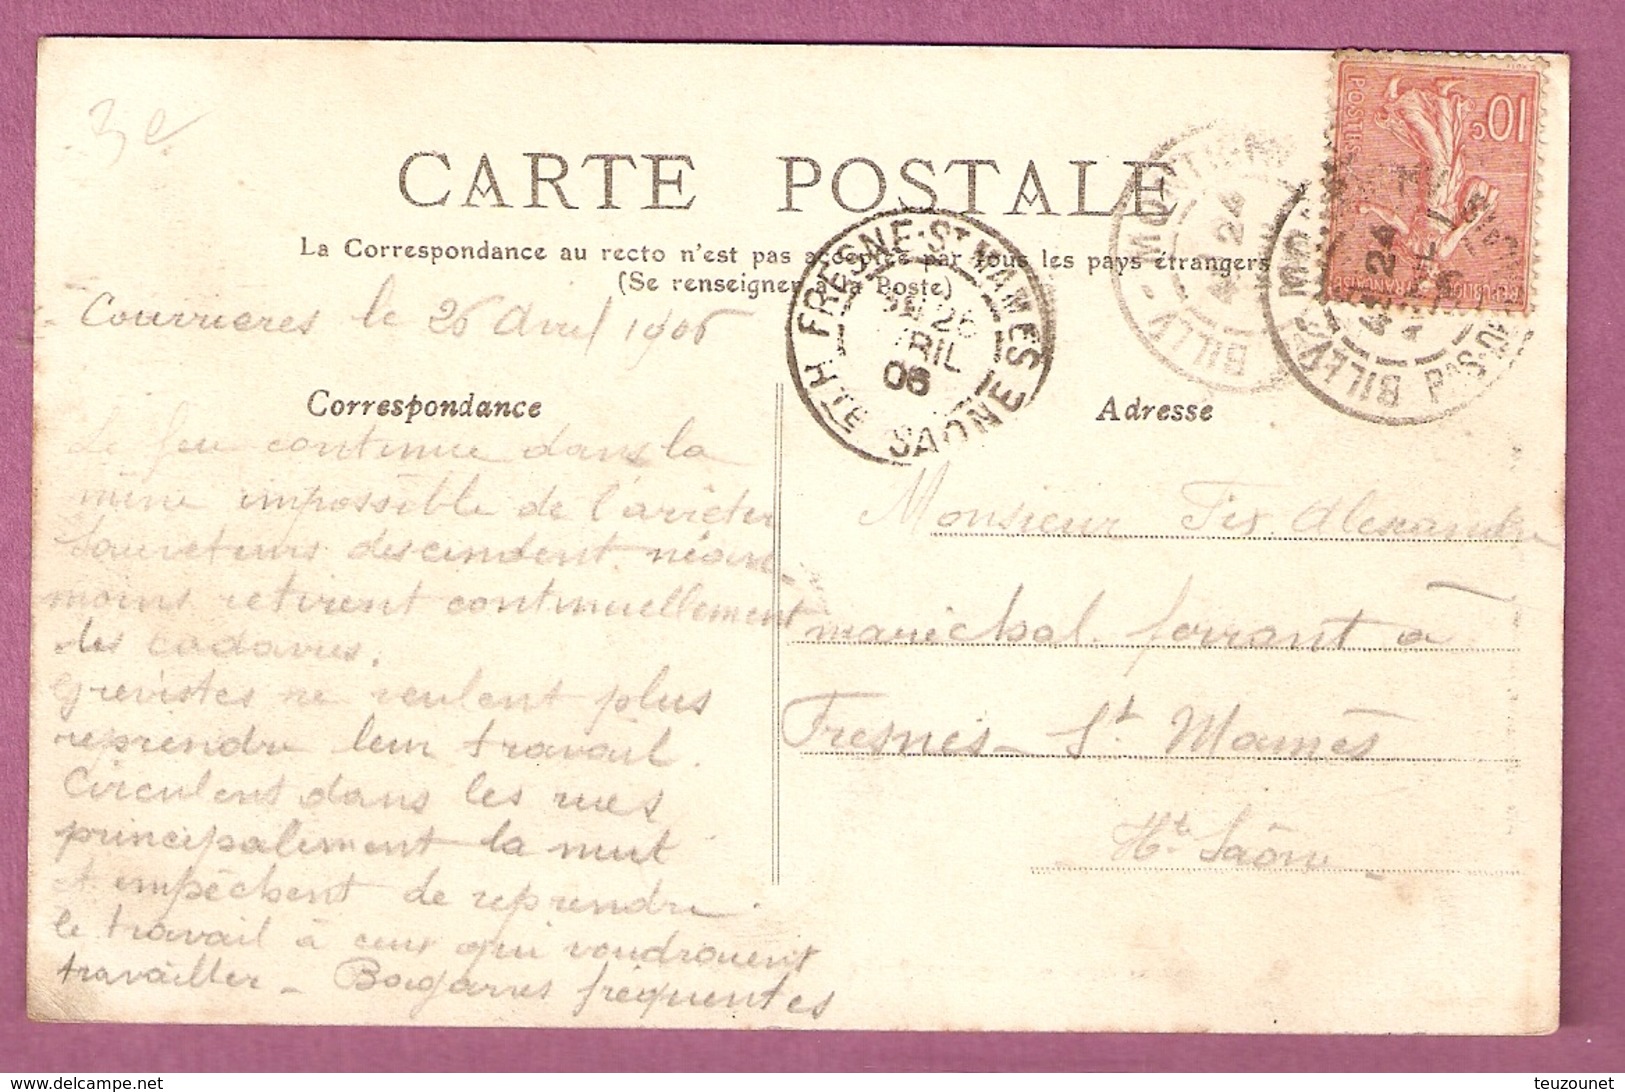 3 e
CARTE POSTALE
La Correspondance au recto n'est pas acceptée par tous les pays étrangers
(Se renseigner à la Poste)
Courrieres le 26 Avril 1906
Correspondance
Le feu continue dans la
mine impossible de l'arrêter
Sauveteurs descendent néan-
moins retirent continuellement
des cadavres.
Grevistes ne veulent plus
reprendre leur travail.
Circulent dans les rues
principalement la nuit
et empêchent de reprendre
le travail à ceux qui voudraient
travailler - Bagarres fréquentes
Adresse
Monsieur Alexandre
maréchal ferrant à
Fresnes St Mamès
Hte Saône
FRESNE-ST MAMES
26
AVRIL
06
HTE SAONE
BILLY-MONTIGNY
24
BILLY-MONTIGNY
24
AVRIL
PAS-DE-CALAIS
10c
POSTES
REPUBLIQUE FRANÇAISE
teuzounet